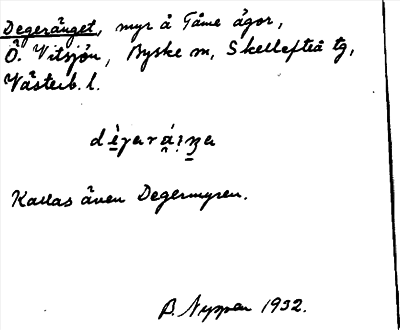 Degeränget, myr å Tåme ägor,
Ö. Vitsjön, Byske sn, Skellefteå tg,
Västerb. l.
Kallas även Degermyren.
B. Nyman 1932.